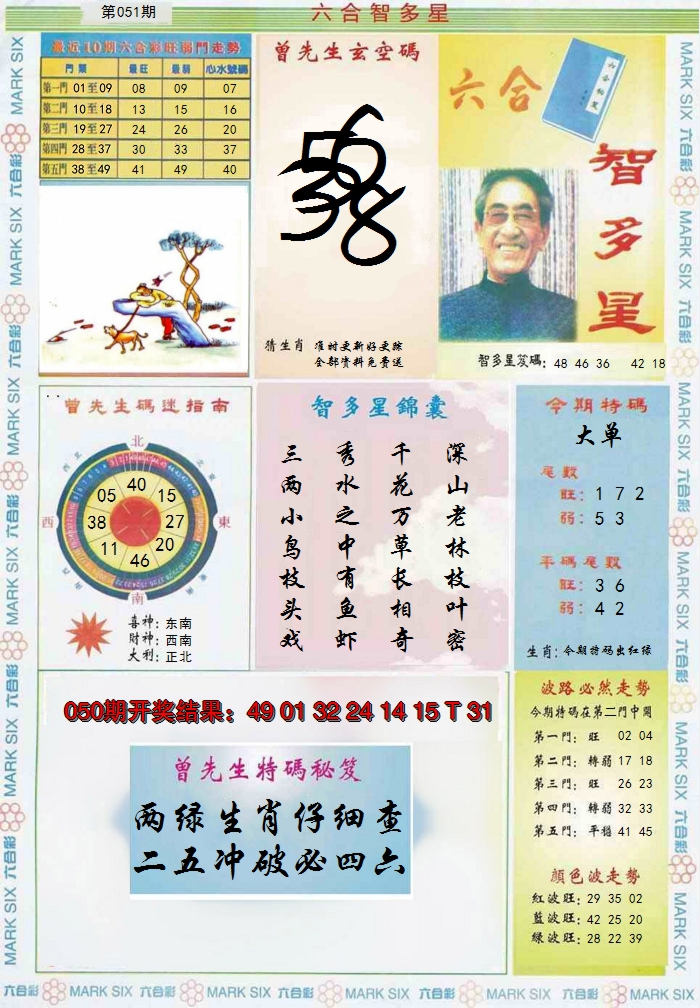 第051期
六合智多星
最近10期六合彩旺弱門走勢
門票 最旺 最弱 心水號碼
第一門 01至09 08 09 07
第二門 10至18 13 15 16
第三門 19至27 24 26 20
第四門 28至37 30 33 37
第五門 38至49 41 49 40
曾先生玄空碼
猜生肖 准时更新好更踪
全部资料免费送
六合
智多星
智多星笈碼: 48 46 36 42 18
曾先生碼迷指南
北
西
東
南
05 40 15
38 27
11 46 20
喜神: 东南
財神: 西南
大利: 正北
智多星錦囊
深山老林枝叶密
千花万草长相奇
秀水之中有鱼虾
三两小鸟枝头戏
今期特碼
大单
尾數
旺: 1 7 2
弱: 5 3
平碼尾數
旺: 3 6
弱: 4 2
生肖: 今期特码出红绿
050期开奖结果: 49 01 32 24 14 15 T 31
曾先生特碼秘笈
两绿生肖仔细查
二五冲破必四六
波路必然走勢
今期特碼在第二門中開
第一門: 旺 02 04
第二門: 轉弱 17 18
第三門: 旺 26 23
第四門: 轉弱 32 33
第五門: 平穩 41 45
顏色波走勢
紅波旺: 29 35 02
藍波旺: 42 25 20
綠波旺: 28 22 39
MARK SIX 六合彩 MARK SIX 六合彩 MARK SIX 六合彩 MARK SIX 六合彩 MARK SIX 六合彩